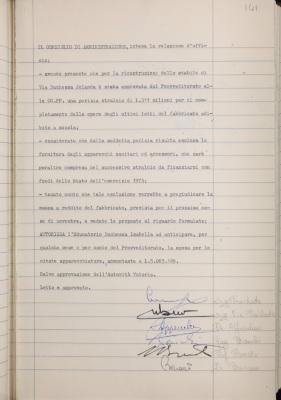 141
IL CONSIGLIO DI AMMINISTRAZIONE, intesa la relazione d'uffi-
cio;
- avendo presente che per la ricostruzione dello stabile di
Via Duchessa Jolanda è stata approvata dal Provveditorato al-
le OO.PP. una perizia stralcio di 1.377 milioni per il com-
pletamento delle opere degli ultimi lotti del fabbricato adi-
bito a scuola;
- considerato che dalla suddetta perizia risulta esclusa la
fornitura degli apparecchi sanitari ed accessori, che sarà
peraltro compresa nel successivo stralcio da finanziarsi con
fondi dello Stato dell'esercizio 1975;
- tenuto conto che tale esclusione verrebbe a pregiudicare la
messa a reddito del fabbricato, prevista per il prossimo mese
di novembre, e vedute le proposte al riguardo formulate;
AUTORIZZA l'Educatorio Duchessa Isabella ad anticipare, per
qualche mese e per conto del Provveditorato, la spesa per le
citate apparecchiature, ammontante a
Salvo approvazione dell'Autorità Tutoria.
Letto e approvato.